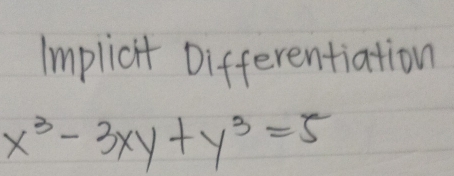 Implicit Differentiation
x³ - 3xy + y³ = 5